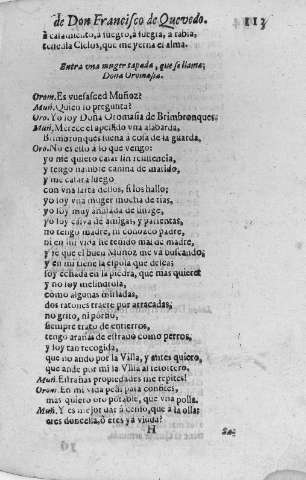 de Don Francisco de Quevedo. 113
a casamiento, a suegro, a suegra, a rabia,
Cielos, que me yerna el alma.
Entra vna muger tapada, que se llama,
Doña Oromasia.
Orom. Es vuesasced Muñoz?
Muñ. Quien lo pregunta?
Oro. Yo soy Doña Oromasia de Brimbronques.
Muñ. Merece el apellido vna alabarda,
Brimbronques suena a cosa de la guarda,
Oro. No es esso a lo que vengo:
yo me quiero casar sin
y tengo hambre canina de marido,
y me casara luego
con vna sarta dellos, si los hallo;
yo soy vna muger mocha de tias,
yo soy muy de linage,
yo soy calva de amigas, y parientas,
no tengo madre, ni conozco padre,
ni en mi vida he tenido mal de madre,
y se que el buen Muñoz me va buscando;
y en mi tiene la esposa que dessea:
soy echada en la piedra, que mas quiere?
y no soy melindrosa,
como algunas
dos ratones traete por arracadas;
no grito, ni porfio,
siempre trato de entierros,
tengo arañas de estrado como perros,
y soy tan recogida,
que no ando por la Villa, y antes quiero,
que ande por mi la Villa al retortero.
Muñ. Estrañas propiedades me repites!
Orom. En mi vida pedi para confites,
mas quiero oro potable, que vna polla.
Muñ. Y es mejor dar a censo, que a la olla:
eres doncella, ò eres ya viuda?
H